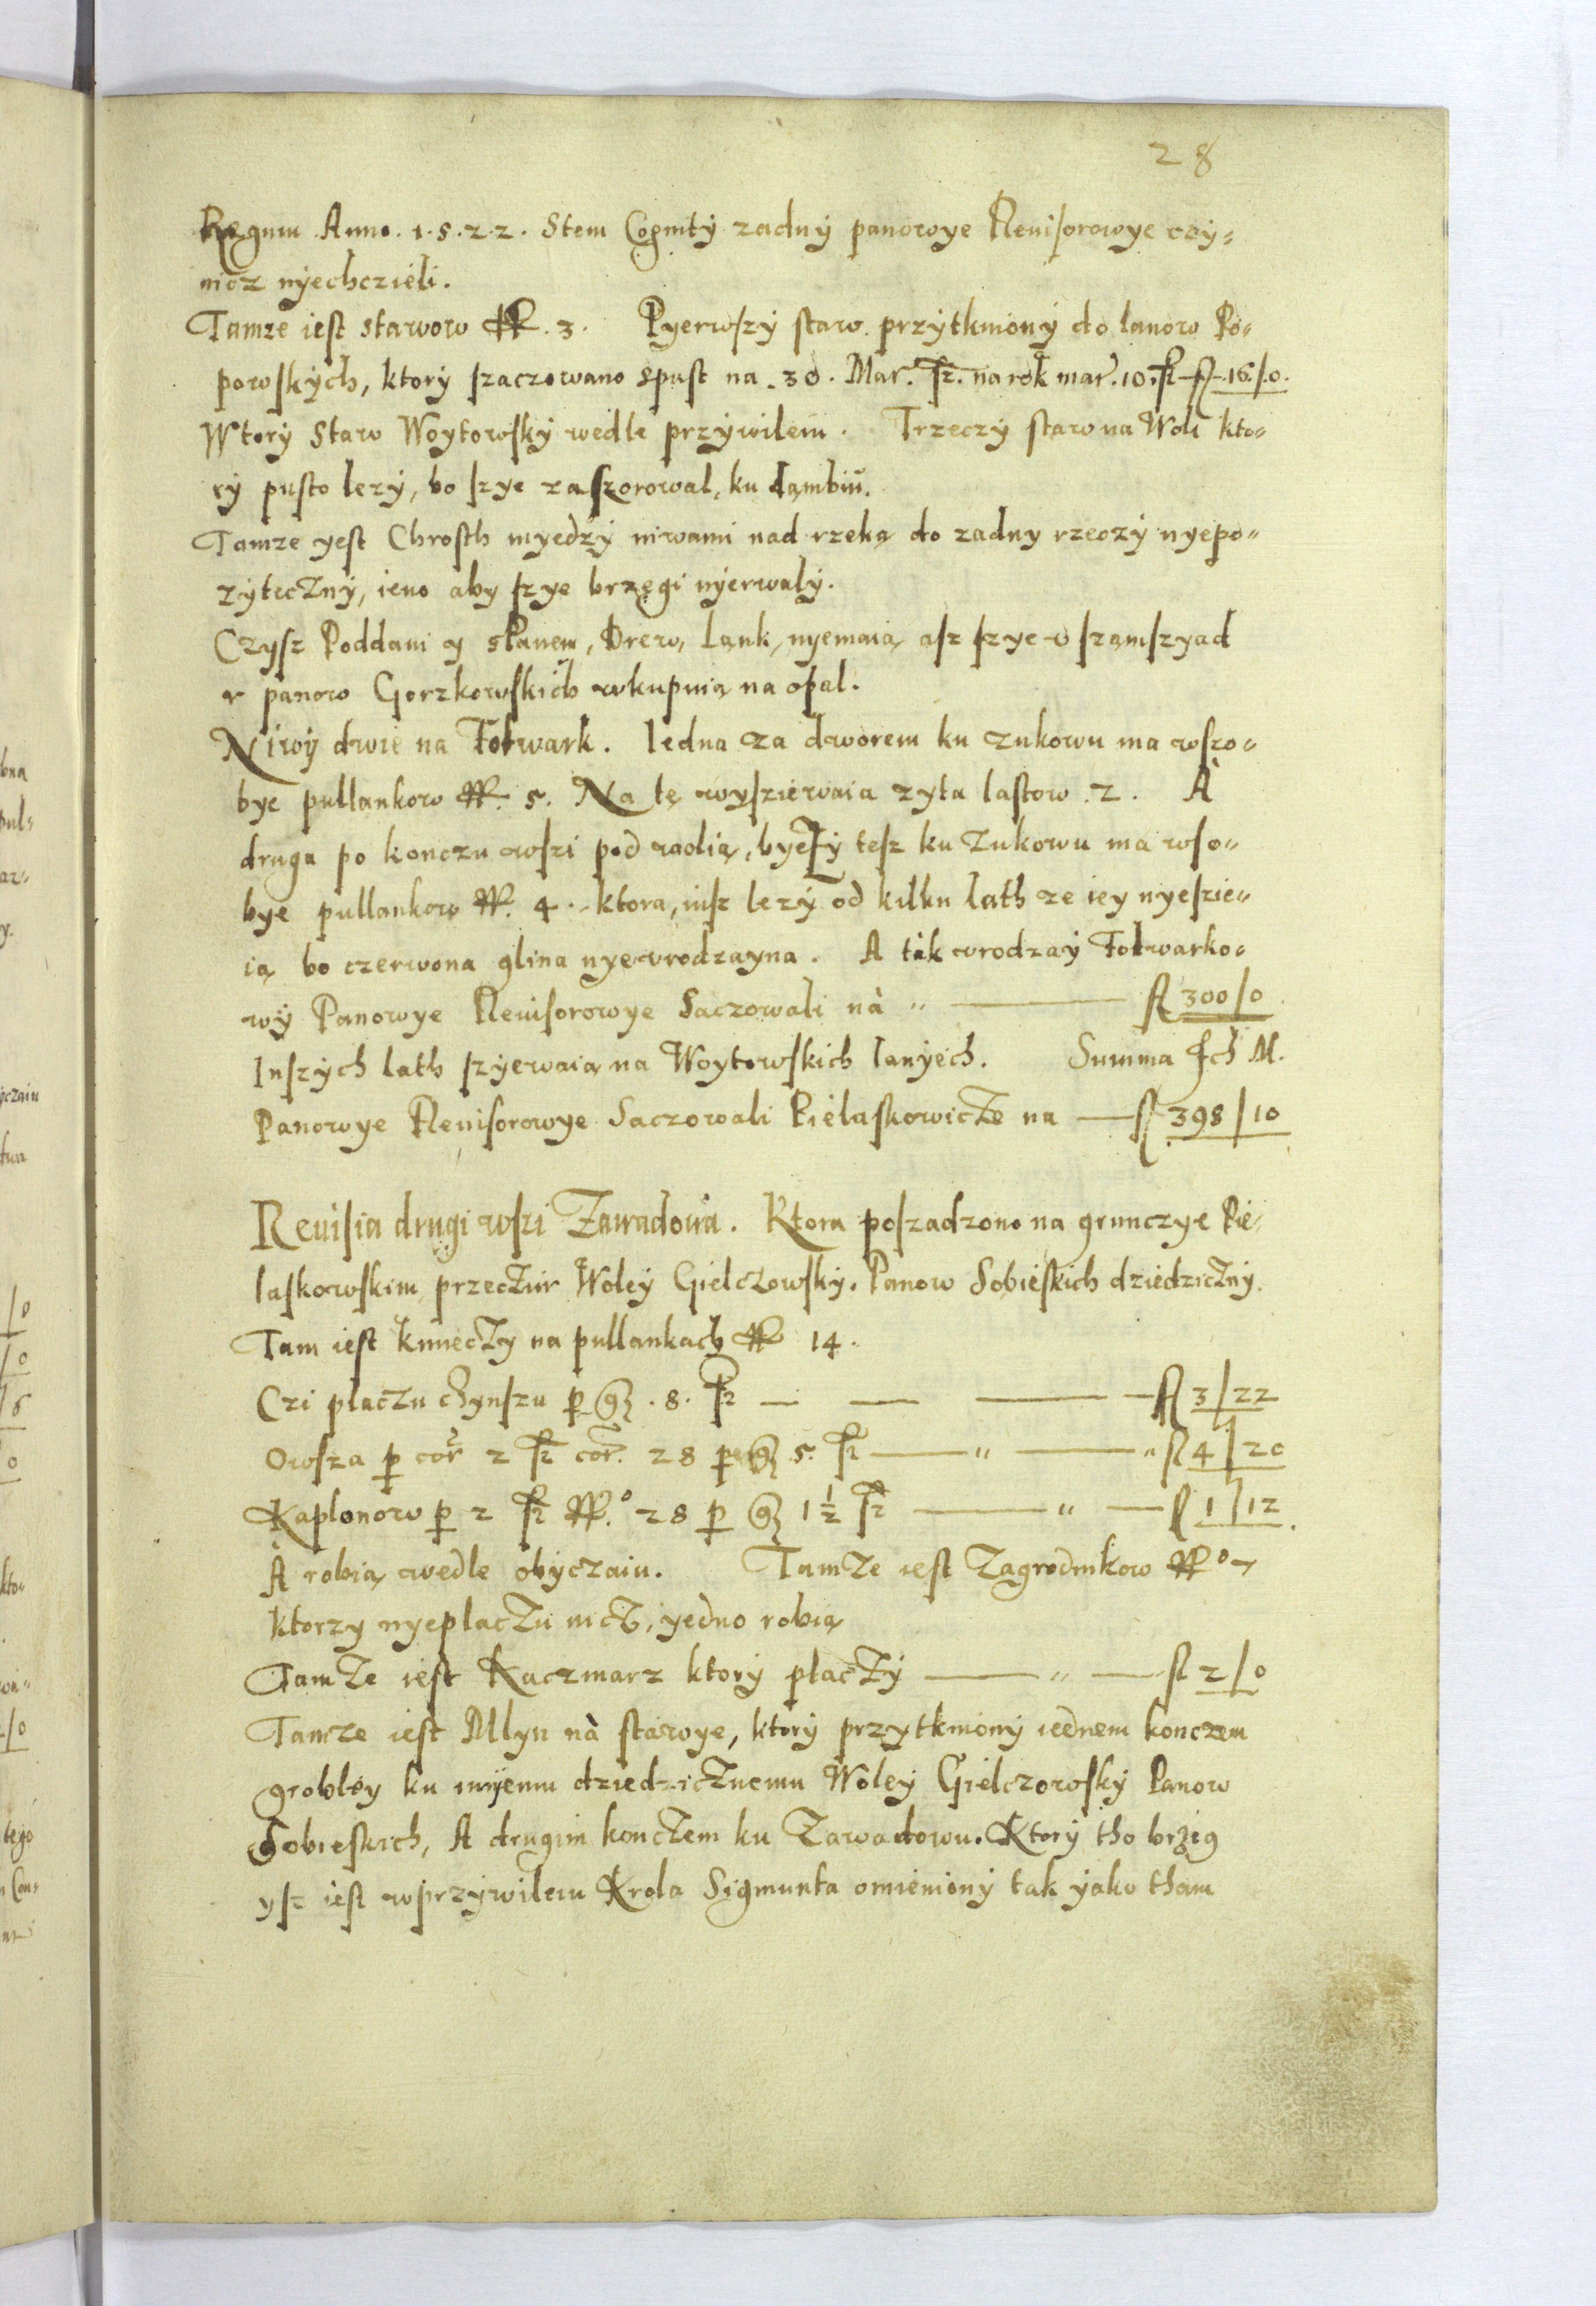 28
Regnu Anno. 1.5.2.2. Stem Cognity zadny panowye Reuisorowye czy=
nicz nyechczieli.
Tamze iest stawow 3. Pyerwszy staw przytkniony do lanow Po=
powskych, ktory szaczowano spust na .30. Mar. fz. na rok mar. 10. fz fl 16/0.
Wtory Staw Woytowsky wedle przywileiu. Trzeczy staw na Woli kto=
ry pusto lezy, bo szye zaszorowal, ku dambiu.
Tamze yest Chrosth myedzy niwami nad rzeką do zadny rzeczy nyepo=
zyteczny, ieno aby szye brzegi nyerwaly.
Czysz Poddani y sPanem, Drew, Lank, nyemaią, asz szye v sząmszyad
v panow Gorzkowskich wkupuią na opal.
Niwy dwie na Folwark. Iedna za dworem ku zukowu ma wszo=
bye pullankow 5. Na tę wyszierwaia zyta lastow .2. A
druga po konczu wszi pod wolią, byeży tesz ku Zukowu ma wso=
bye pullankow 4. ktora, iusz lezy od kilku lath ze iey nyeszie=
ią bo czerwona glina nyewrodzayna. A tak wrodzay Folwarko=
wy Panowye Reuisorowye Saczowali nà " fl 300/0.
Inszych lath szyerwaią na Woytowskich lanyech. Summa M.
Panowye Reuisorowye Saczowali Pielaskowicze na fl 398/10
Reuisia drugi wszi Zawadowa. Ktora poszadzono na grunczye Pie=
laskowskim przeczuir Woley Gielczowsky. Panow Sobieskich dziedziczny.
Tam iest kmieczy na pullankach 14.
Czi placzu chynszu p g .8. fz fl 3/22
Owsza p cor 2 fz cor. 28 per g 5. fz " " fl 4/20
Kaplonow p 2 fz 28 p g 1 1/2 fz " fl 1/12.
A robią wedle obyczaiu. Tamze iest Zagrodnikow 7
ktorzy nyeplaczu nicz, yedno robią
Tamze iest Kaczmarz ktory placzy " fl 2/0
Tamze iest Mlyn nà stawye, ktory przytkniony iednem konczem
grobley ku imyeniu dziedzicznemu Woley Gielczowsky Panow
Sobieskich, A drugim konczem ku Zawadowu. Ktory tho brzig
ysz iest wprzywileiu Krola Sigmunta omieniony tak yako tham